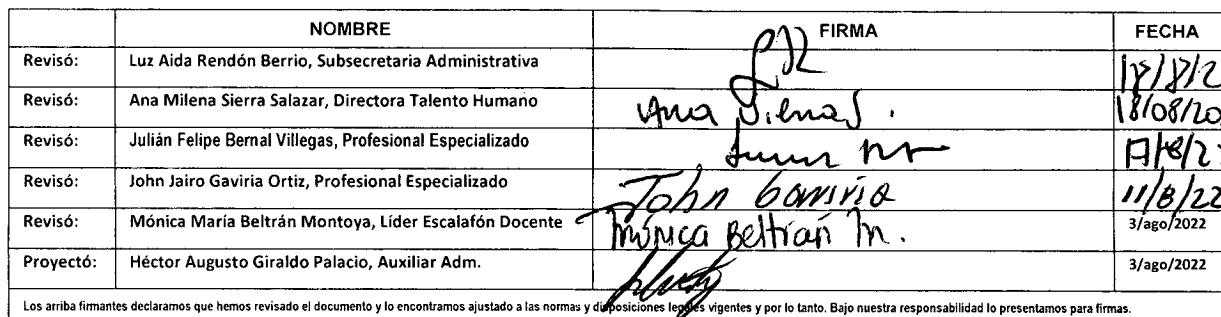 NOMBRE FIRMA FECHA
Revisó: Luz Aida Rendón Berrio, Subsecretaria Administrativa
Revisó: Ana Milena Sierra Salazar, Directora Talento Humano Ana Sierra S. 18/08/20
Revisó: Julián Felipe Bernal Villegas, Profesional Especializado
Revisó: John Jairo Gaviria Ortiz, Profesional Especializado John Gaviria 11/8/22
Revisó: Mónica María Beltrán Montoya, Líder Escalafón Docente Mónica Beltrán M. 3/ago/2022
Proyectó: Héctor Augusto Giraldo Palacio, Auxiliar Adm. 3/ago/2022
Los arriba firmantes declaramos que hemos revisado el documento y lo encontramos ajustado a las normas y disposiciones legales vigentes y por lo tanto. Bajo nuestra responsabilidad lo presentamos para firmas.